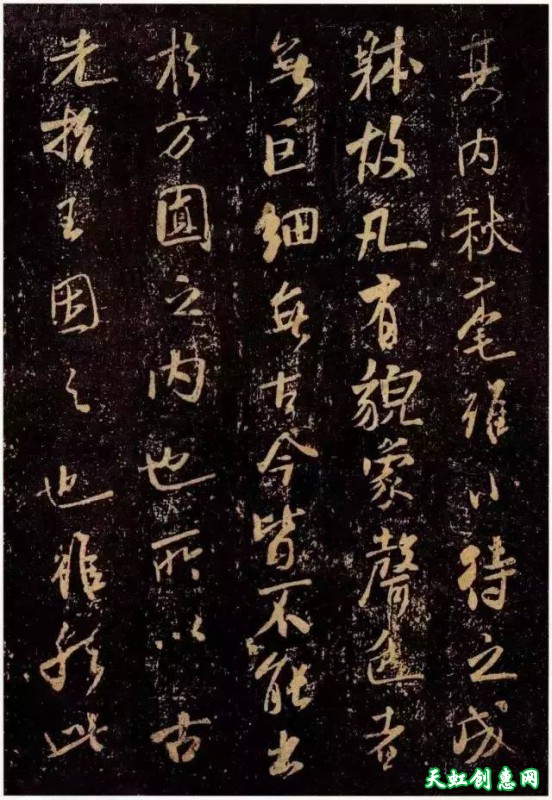 其内秋毫雖小待之成
躰故凡有貌象聲色者
無巨細無古今皆不能出
於方圓之内也所以古
先哲王因之也雖然此
天虹创惠网